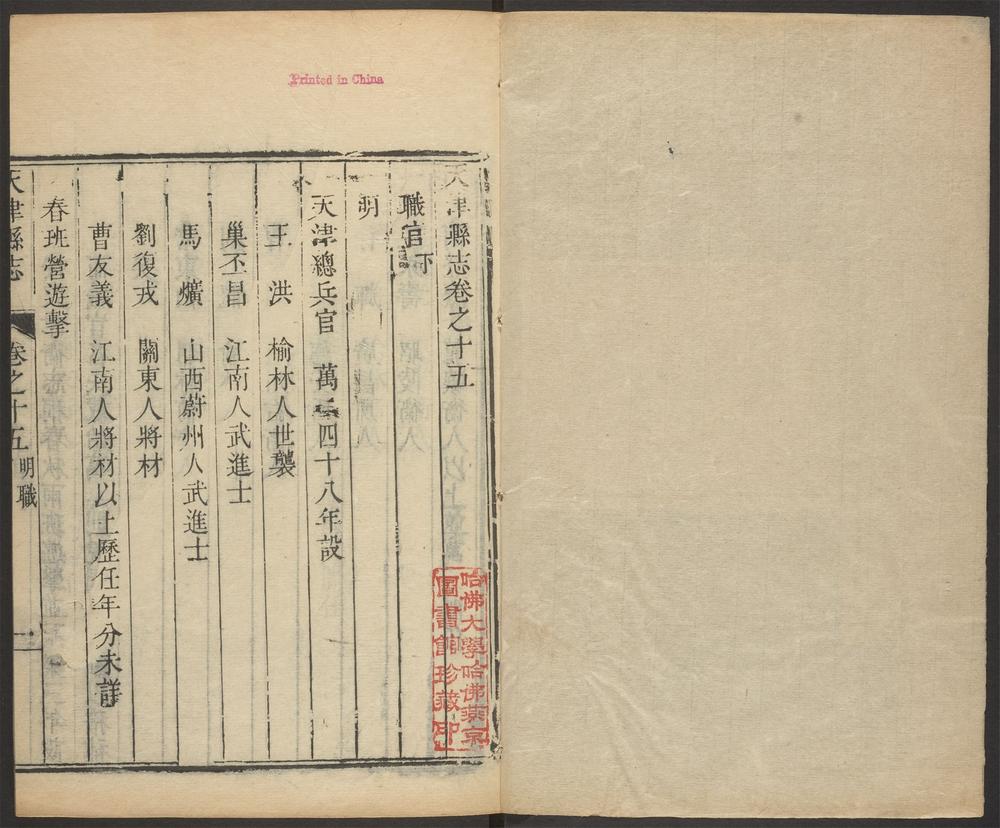 Printed in China
天津縣志卷之十五
職官下
明
天津總兵官 萬曆四十八年設
王 洪 榆林人世襲
巢丕昌 江南人武進士
馬 爌 山西蔚州人武進士
劉復戎 關東人將材
曹友義 江南人將材以上歷任年分未詳
春班營遊擊
天津縣志 卷之十五 明職 一
哈佛大學哈佛燕京
圖書館珍藏印